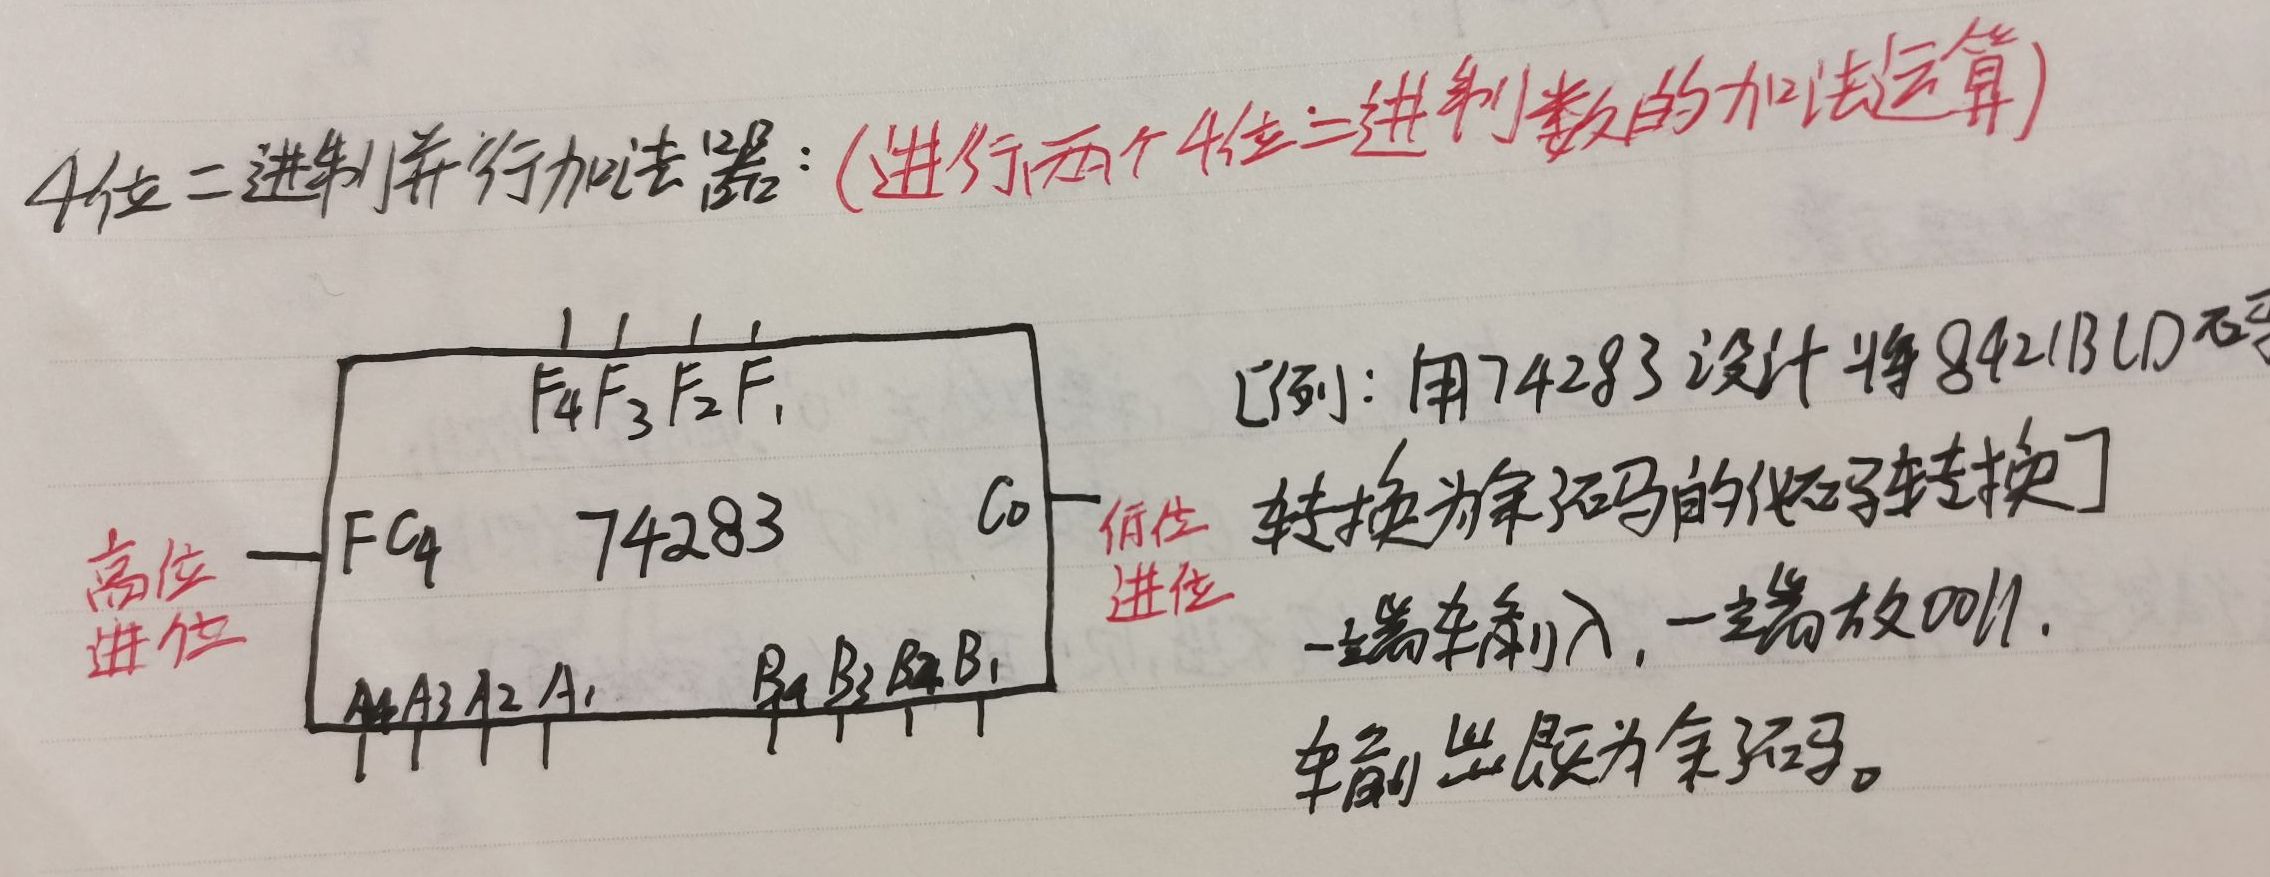 4位二进制并行加法器：（进行两个4位二进制数的加法运算）
F4 F3 F2 F1
FC4 74283 C0
高位
进位
低位
进位
A4 A3 A2 A1 B4 B3 B2 B1
[例：用74283设计将8421BCD码
转换为余3码的代码转换]
一端输入，一端放0011.
输出既为余3码。